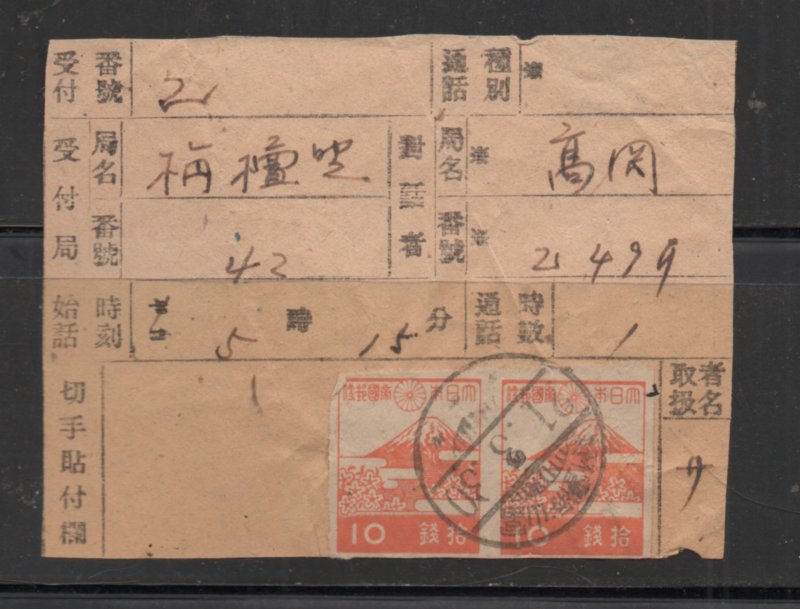 受付番號 21 通話種別 ※
受付局 局名 栴檀野 對話者 局名 ※ 高岡
番號 42 番號 ※ 2499
始話時刻 5時15分 通話時數 1
切手貼付欄 取扱者名 サ
大日本帝國郵便 大日本帝國郵便
21.3.30
10 錢拾 10 錢拾